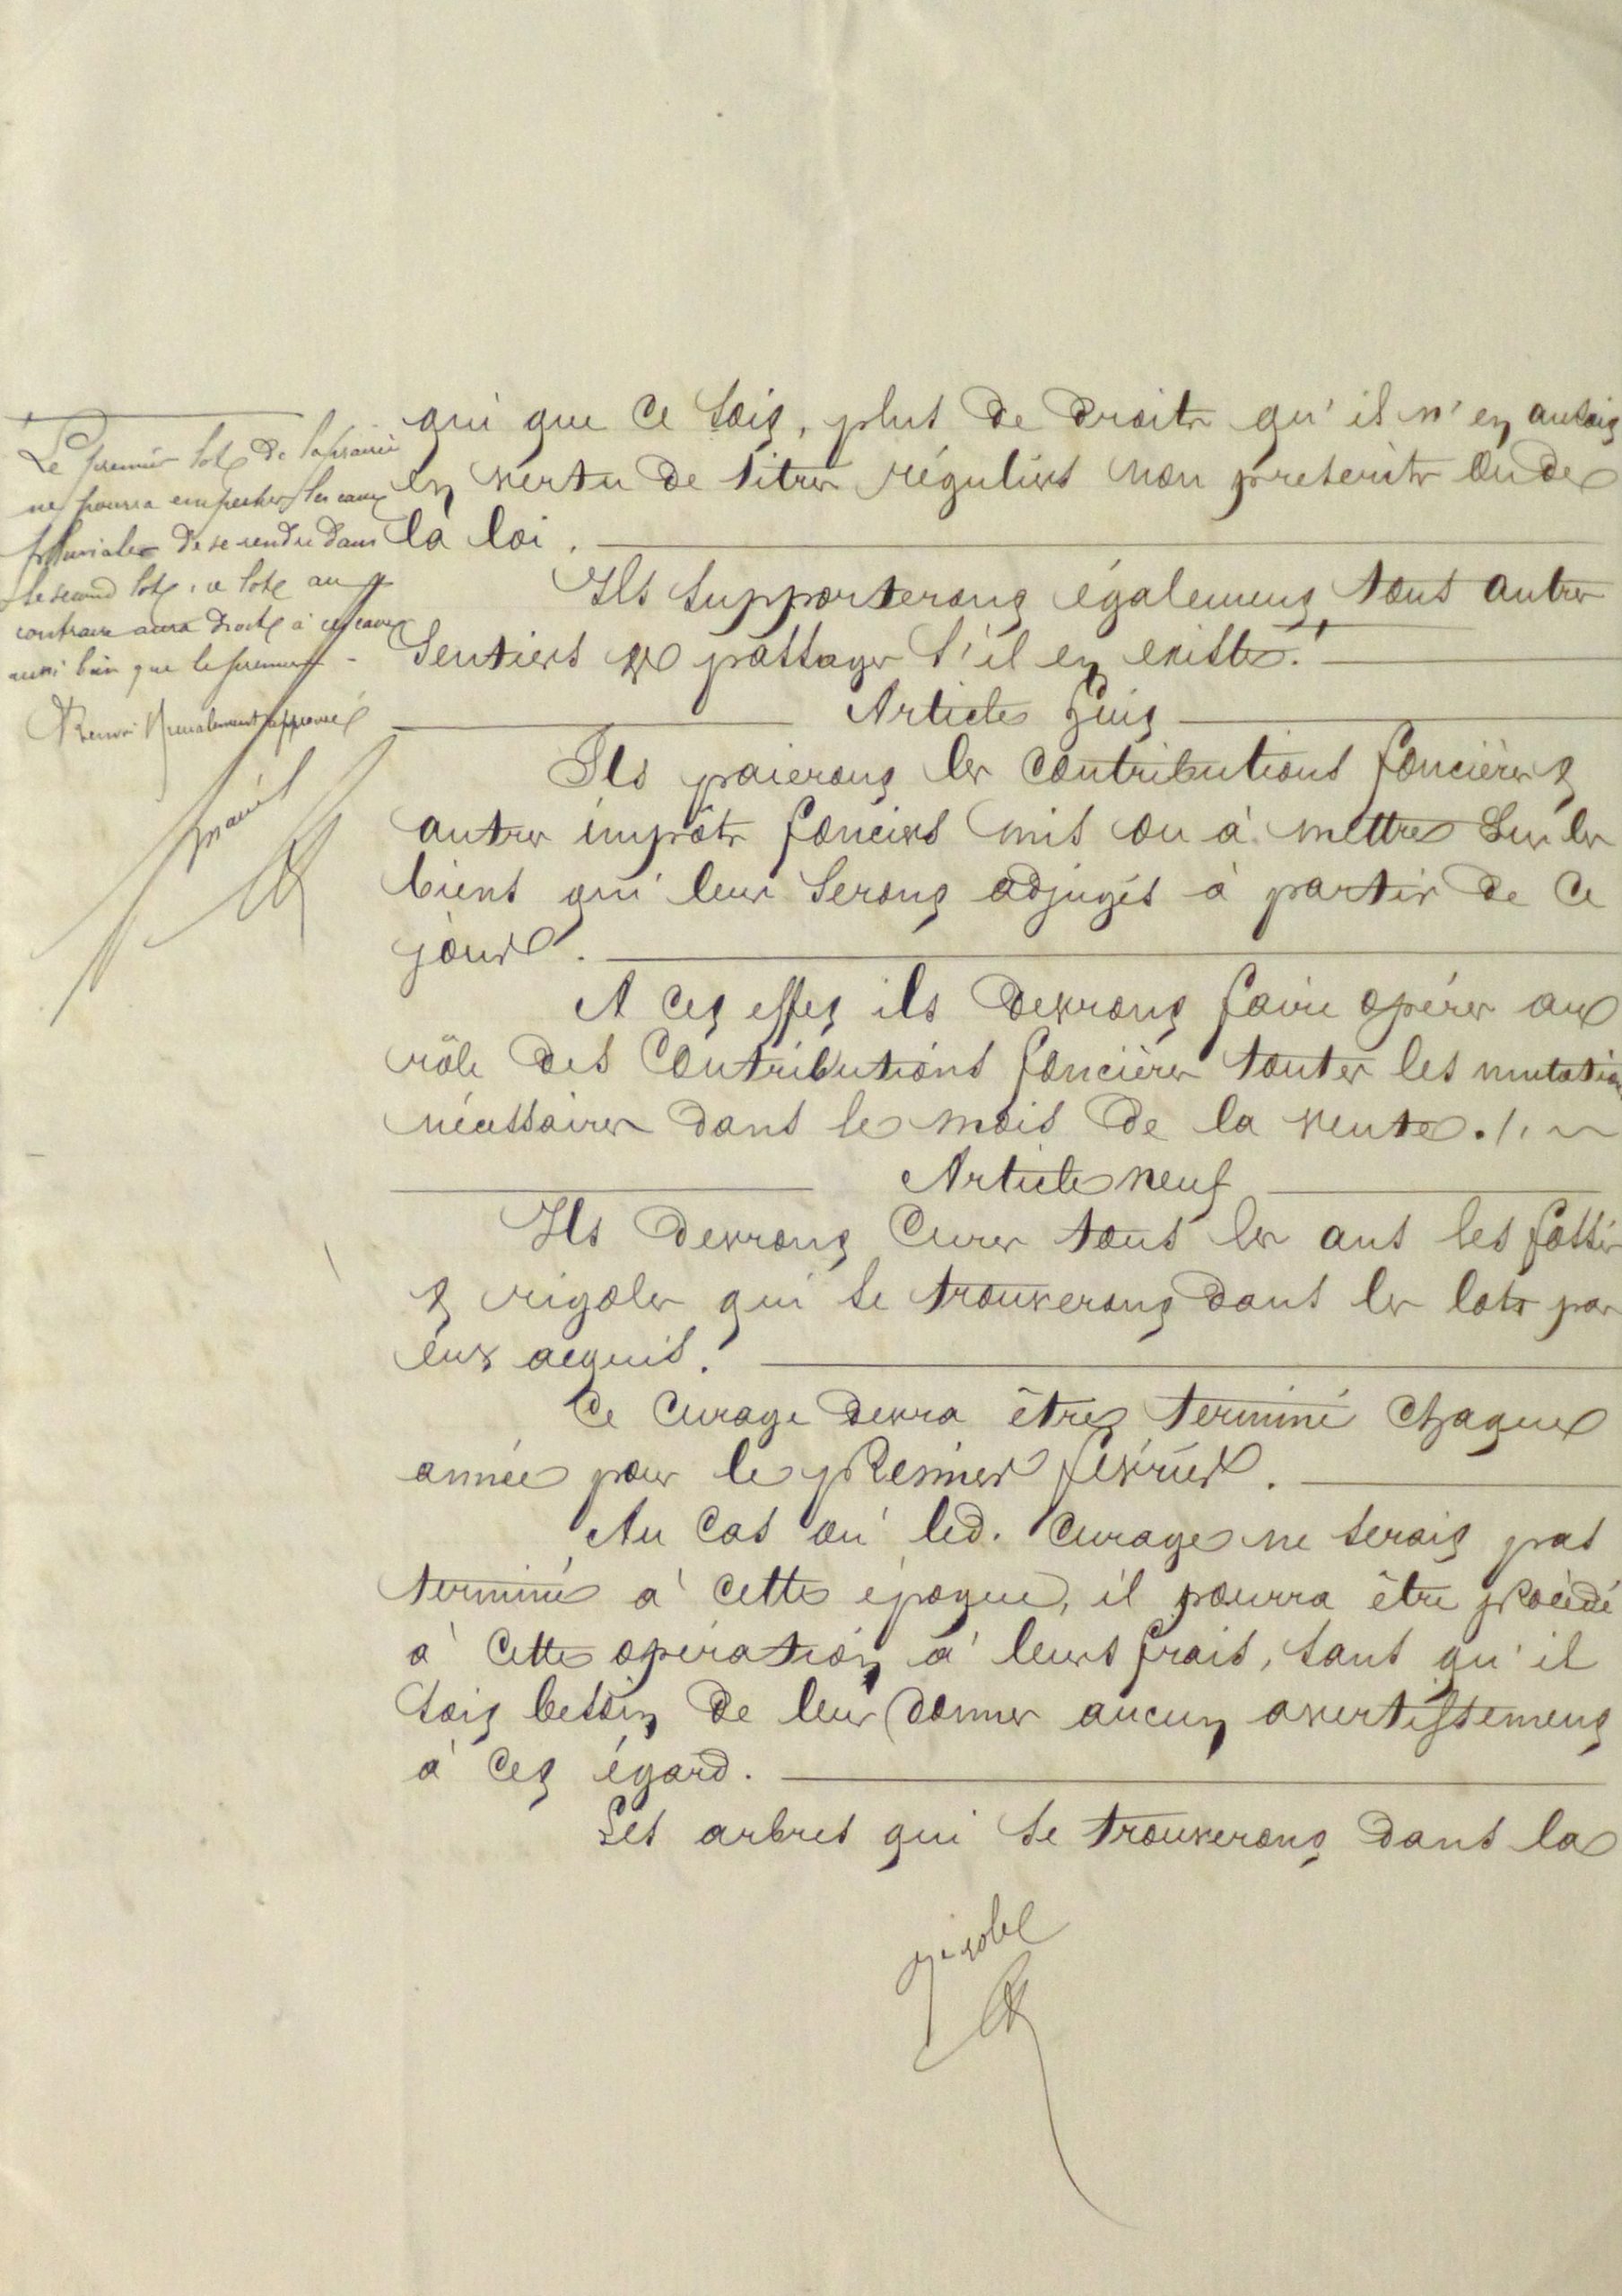 Le premier lot de la prairie
ne pourra empecher les eaux
pluviales de se rendre dans
le second lot, ce lot au
contraire aura droit à ces eaux
aussi bien que le premier
Renvoi approuvé
qui que ce soit, plus de droits qu'il n'en aurait
en vertu de titres réguliers non prescrits ou de
la loi.
Ils supporteront également, tous autres
sentiers et passages s'il en existe.
Article huit
Ils paieront les contributions foncières et
autres impôts fonciers mis ou à mettre sur les
biens qui leur seront adjugés à partir de ce
jour.
A cet effet ils devront faire opérer au
rôle des contributions foncières toutes les mutations
nécessaires dans le mois de la vente.
Article neuf
Ils devront curer tous les ans les fossés
et rigoles qui se trouveront dans les lots par
eux acquis.
Ce curage devra être terminé chaque
année pour le premier février.
Au cas où led. curage ne serait pas
terminé à cette époque, il pourra être procédé
à cette opération à leurs frais, sans qu'il
soit besoin de leur donner aucun avertissement
à cet égard.
Les arbres qui se trouveront dans la